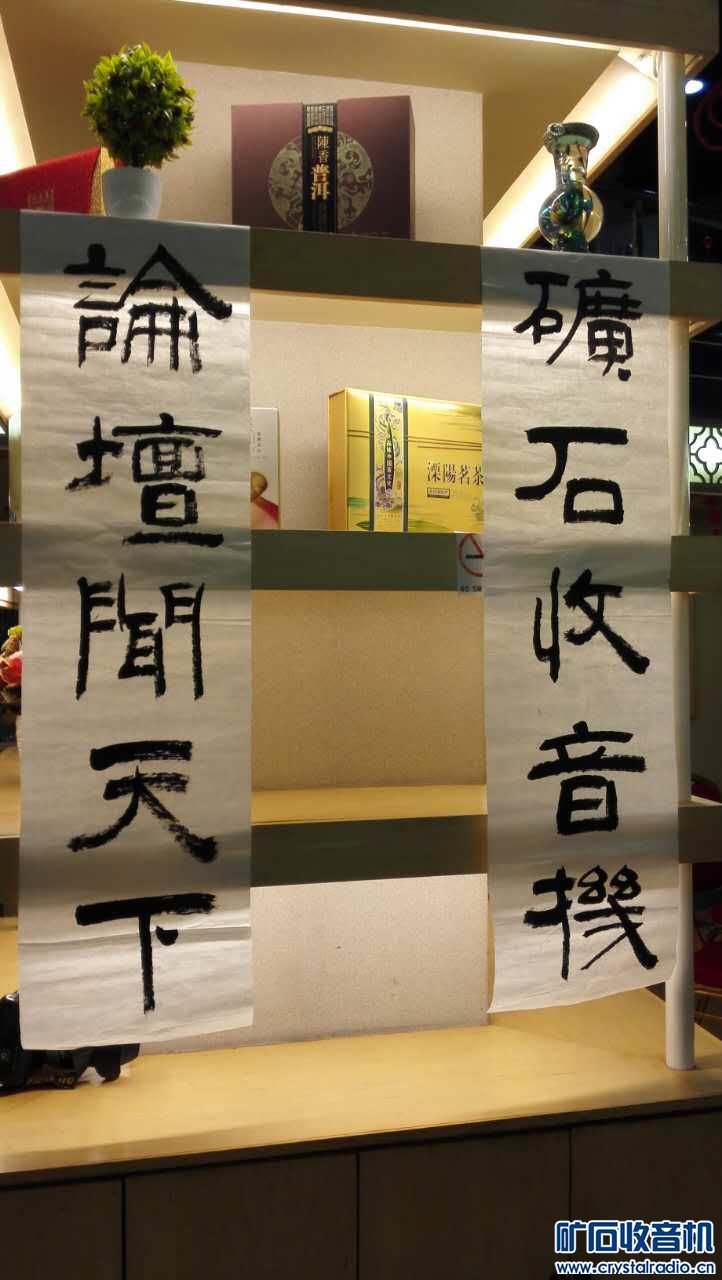 礦石收音機
論壇聞天下
陳香普洱
溧陽茗茶
NO SM
矿石收音机
www.crystalradio.cn